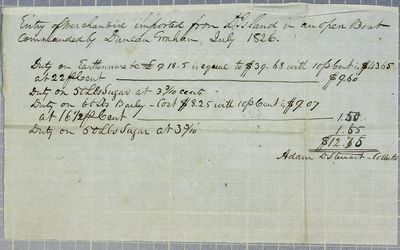 Entry of Merchandise imported from Dd Island in an open Boat
Commanded by Duncan Graham, July 1826.
Duty on Earthenware £9.18.5 is equal to $39.68 with 10 p Cent is $43.65
at 22 p Cent $9.60
Duty on 50 Lbs Sugar at 3 cents
Duty on 60 Lbs Barly - Cost $8.25 with 10 p Cent is $9.07
at 16 1/2 p Cent 1.50
Duty on 50 Lbs Sugar at 3 1.65
$12.75
Adam D Steuart - Collector